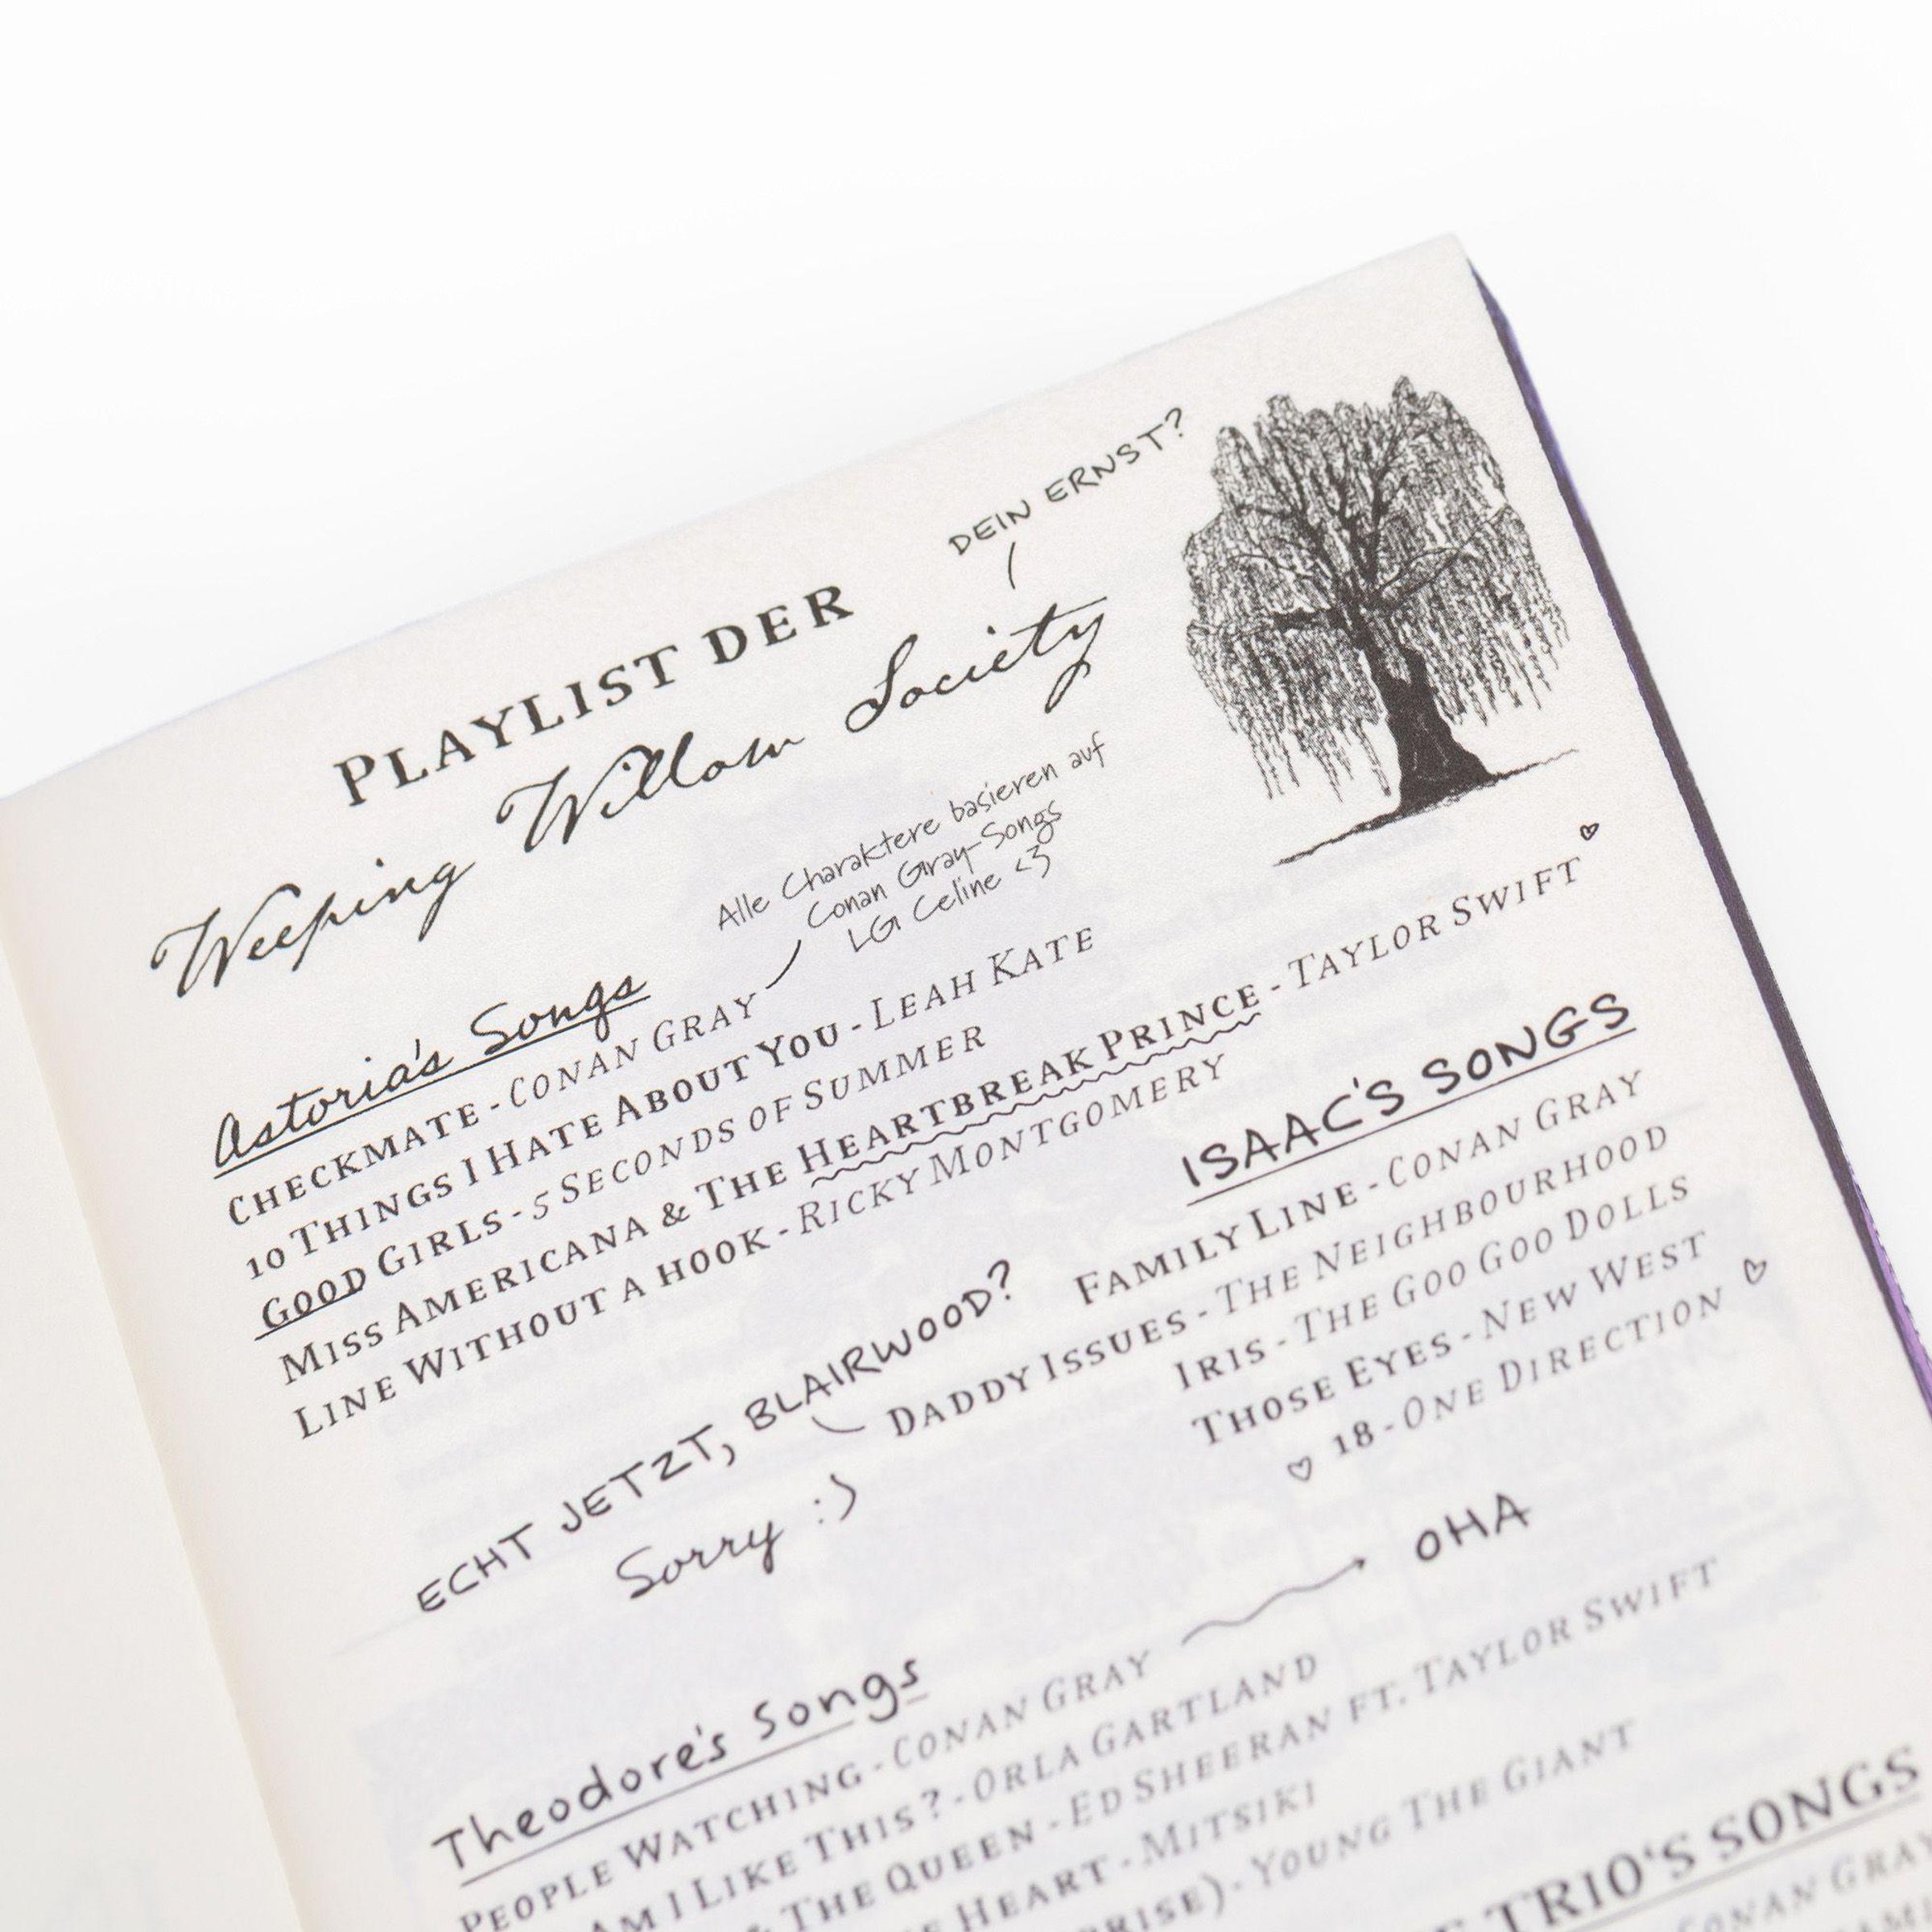 DEIN ERNST?
PLAYLIST DER
Weeping Willow Society
Alle Charaktere basieren auf
Conan Gray-Songs
LG Celine <3
Astoria's Songs
CHECKMATE - CONAN GRAY
10 THINGS I HATE ABOUT YOU - LEAH KATE
GOOD GIRLS - 5 SECONDS OF SUMMER
MISS AMERICANA & THE HEARTBREAK PRINCE - TAYLOR SWIFT ♡
LINE WITHOUT A HOOK - RICKY MONTGOMERY
ISAAC'S SONGS
FAMILY LINE - CONAN GRAY
ECHT JETZT, BLAIRWOOD?
DADDY ISSUES - THE NEIGHBOURHOOD
Sorry :)
IRIS - THE GOO GOO DOLLS
THOSE EYES - NEW WEST
♡ 18 - ONE DIRECTION ♡
Theodore's Songs
PEOPLE WATCHING - CONAN GRAY
OHA
AM I LIKE THIS? - ORLA GARTLAND
& THE QUEEN - ED SHEERAN FT. TAYLOR SWIFT
HEART - MITSIKI
- YOUNG THE GIANT
TRIO'S SONGS
CONAN GRAY